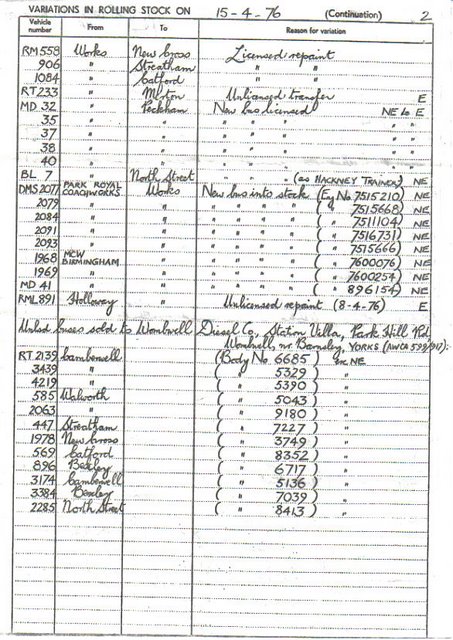 VARIATIONS IN ROLLING STOCK ON 15-4-76 (Continuation) 2
Vehicle number From To Reason for variation
RM 558 Works New Cross Licensed repaint
906 " Streatham " "
1084 " Catford " "
RT 233 " Merton Unlicensed transfer E
MD 32 " Peckham New bus licensed NE to E
35 " " " " " " "
37 " " " " " " "
38 " " " " " " "
40 " " " " " " "
BL 7 " North Street " " " (as HACKNEY TRAINER) NE
DMS 2077 PARK ROYAL COACHWORKS Works New bus into stock (Eng No. 7515210) NE
2079 " " " " " " ( " 7515668) NE
2084 " " " " " " ( " 7511104) NE
2091 " " " " " " ( " 7516731) NE
2093 " " " " " " ( " 7515666) NE
1968 MCW BIRMINGHAM " " " " " ( " 7600076) NE
1969 " " " " " " ( " 7600254) NE
MD 41 " " " " " " ( " 896154) NE
RML 891 Holloway " Unlicensed repaint (8-4-76) E
Unlsd buses sold to Wombwell Diesel Co., Station Villa, Park Hill Rd,
Wombwell nr Barnsley, YORKS (AWCA 598/917):-
RT 2139 Camberwell (Body No. 6685) ex NE
3439 " ( " 5329) "
4219 " ( " 5390) "
585 Walworth ( " 5043) "
2063 " ( " 9180) "
447 Streatham ( " 7227) "
1978 New Cross ( " 3749) "
569 Catford ( " 8352) "
896 Bexley ( " 6717) "
3174 Camberwell ( " 5136) "
3384 Bexley ( " 7039) "
2285 North Street ( " 8413) "